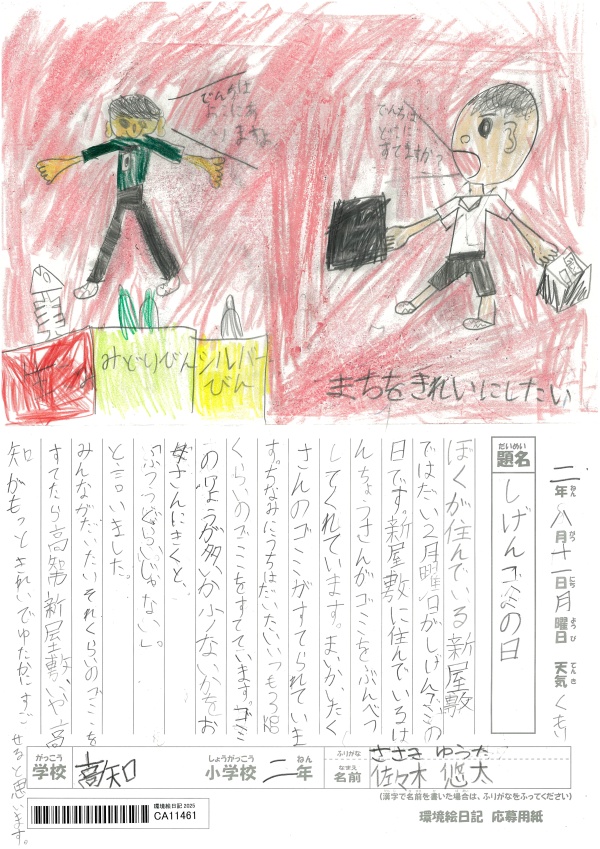 でんちは
ますよ
でんちは
どこに
すてますか?
みどりびん
シルバー
びん
まちをきれいにしたい
二年八月十一日月曜日 天気くもり
ねん がつ にち ようび てんき
だいめい
題名
しげんゴミの日
ぼくが住んでいる新屋敷
ではだい2月曜日がしげんゴミの
日です。新屋敷に住んでいるは
んちょうさんがゴミをぶんべつ
してくれています。まいかいたく
さんのゴミがすてられていま
す。ちなみにうちはだいたいいつも3kg
くらいのゴミをすてています。ゴミ
のりょうが多いか少ないかをお
母さんにきくと、
「ふつうぐらいじゃない」。
と言いました。
みんながだいたいそれくらいのゴミを
すてたら高知新屋敷、いや高
知がもっときれいでゆたかにすご
せると思います。
がっこう
学校
高知
しょうがっこう ねん
小学校 二年
ふりがな ささき ゆうた
なまえ
名前 佐々木 悠太
(漢字で名前を書いた場合は、ふりがなをふってください)
環境絵日記2025
CA11461
環境絵日記 応募用紙